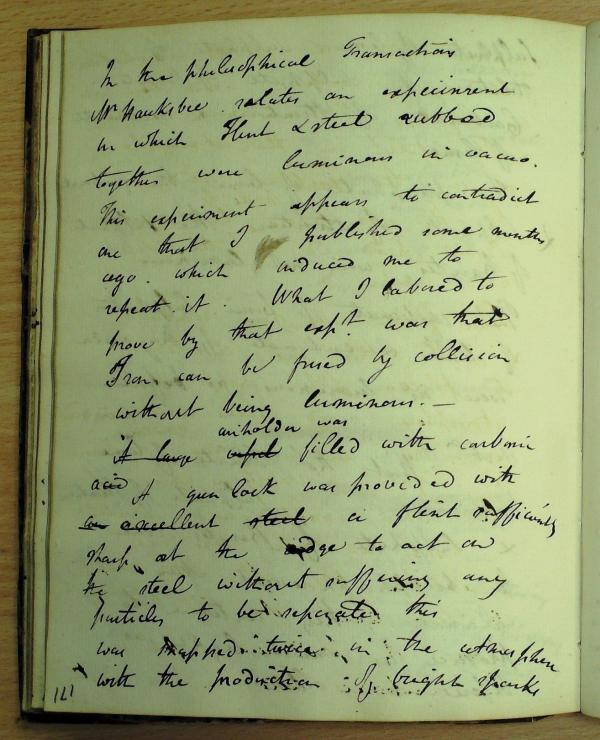 In the philosophical Transactions
Mr Hauksbee relates an experiment
in which Flint & steel rubbed
together were luminous in vacuo.
This experiment appears to contradict
one that I published some months
ago. which induced me to
repeat it. What I labored to
prove by that expt. was that
Iron can be fused by collision
without being luminous. —
airholder was
A large vessel filled with carbonic
acid A gun lock was provided with
an excellent steel a flint sufficiently
sharp at the edge to act on
the steel without suffering any
particles to be separated this
was snapped twice in the atmosphere
with the production of bright sparks
121